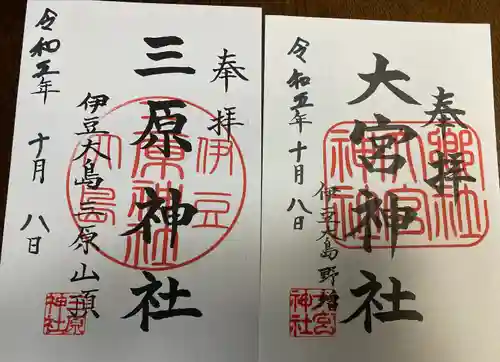 奉拝
三原神社
伊豆大島三原山頂
令和五年 十月 八日
伊豆
三原神社
奉拝
大宮神社
伊豆大島野増
令和五年 十月 八日
大宮神社